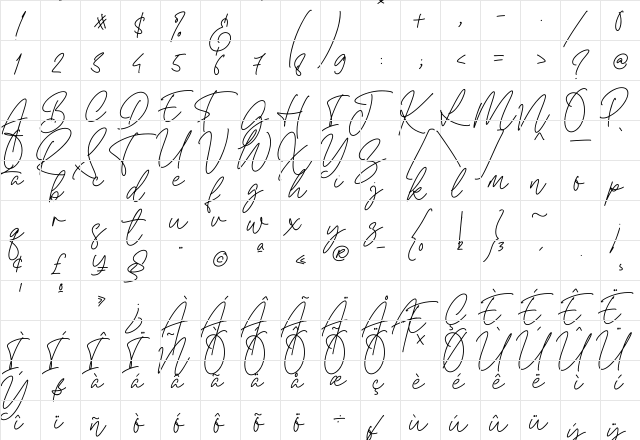 ! " # $ % & ' ( ) * + , - . / 0
1 2 3 4 5 6 7 8 9 : ; < = > ? @
A B C D E F G H I J K L M N O P
Q R S T U V W X Y Z [ \ ] ^ _ `
a b c d e f g h i j k l m n o p
q r s t u v w x y z { | } ~
¢ £ ¥ § ¨ © ª « ® ¯ ° ² ³ ´ · ¸
¹ º » ¿ À Á Â Ã Ä Å Æ Ç È É Ê Ë
Ì Í Î Ï Ñ Ò Ó Ô Õ Ö × Ø Ù Ú Û Ü
Ý ß à á â ã ä å æ ç è é ê ë ì í
î ï ñ ò ó ô õ ö ÷ ø ù ú û ü ý ÿ